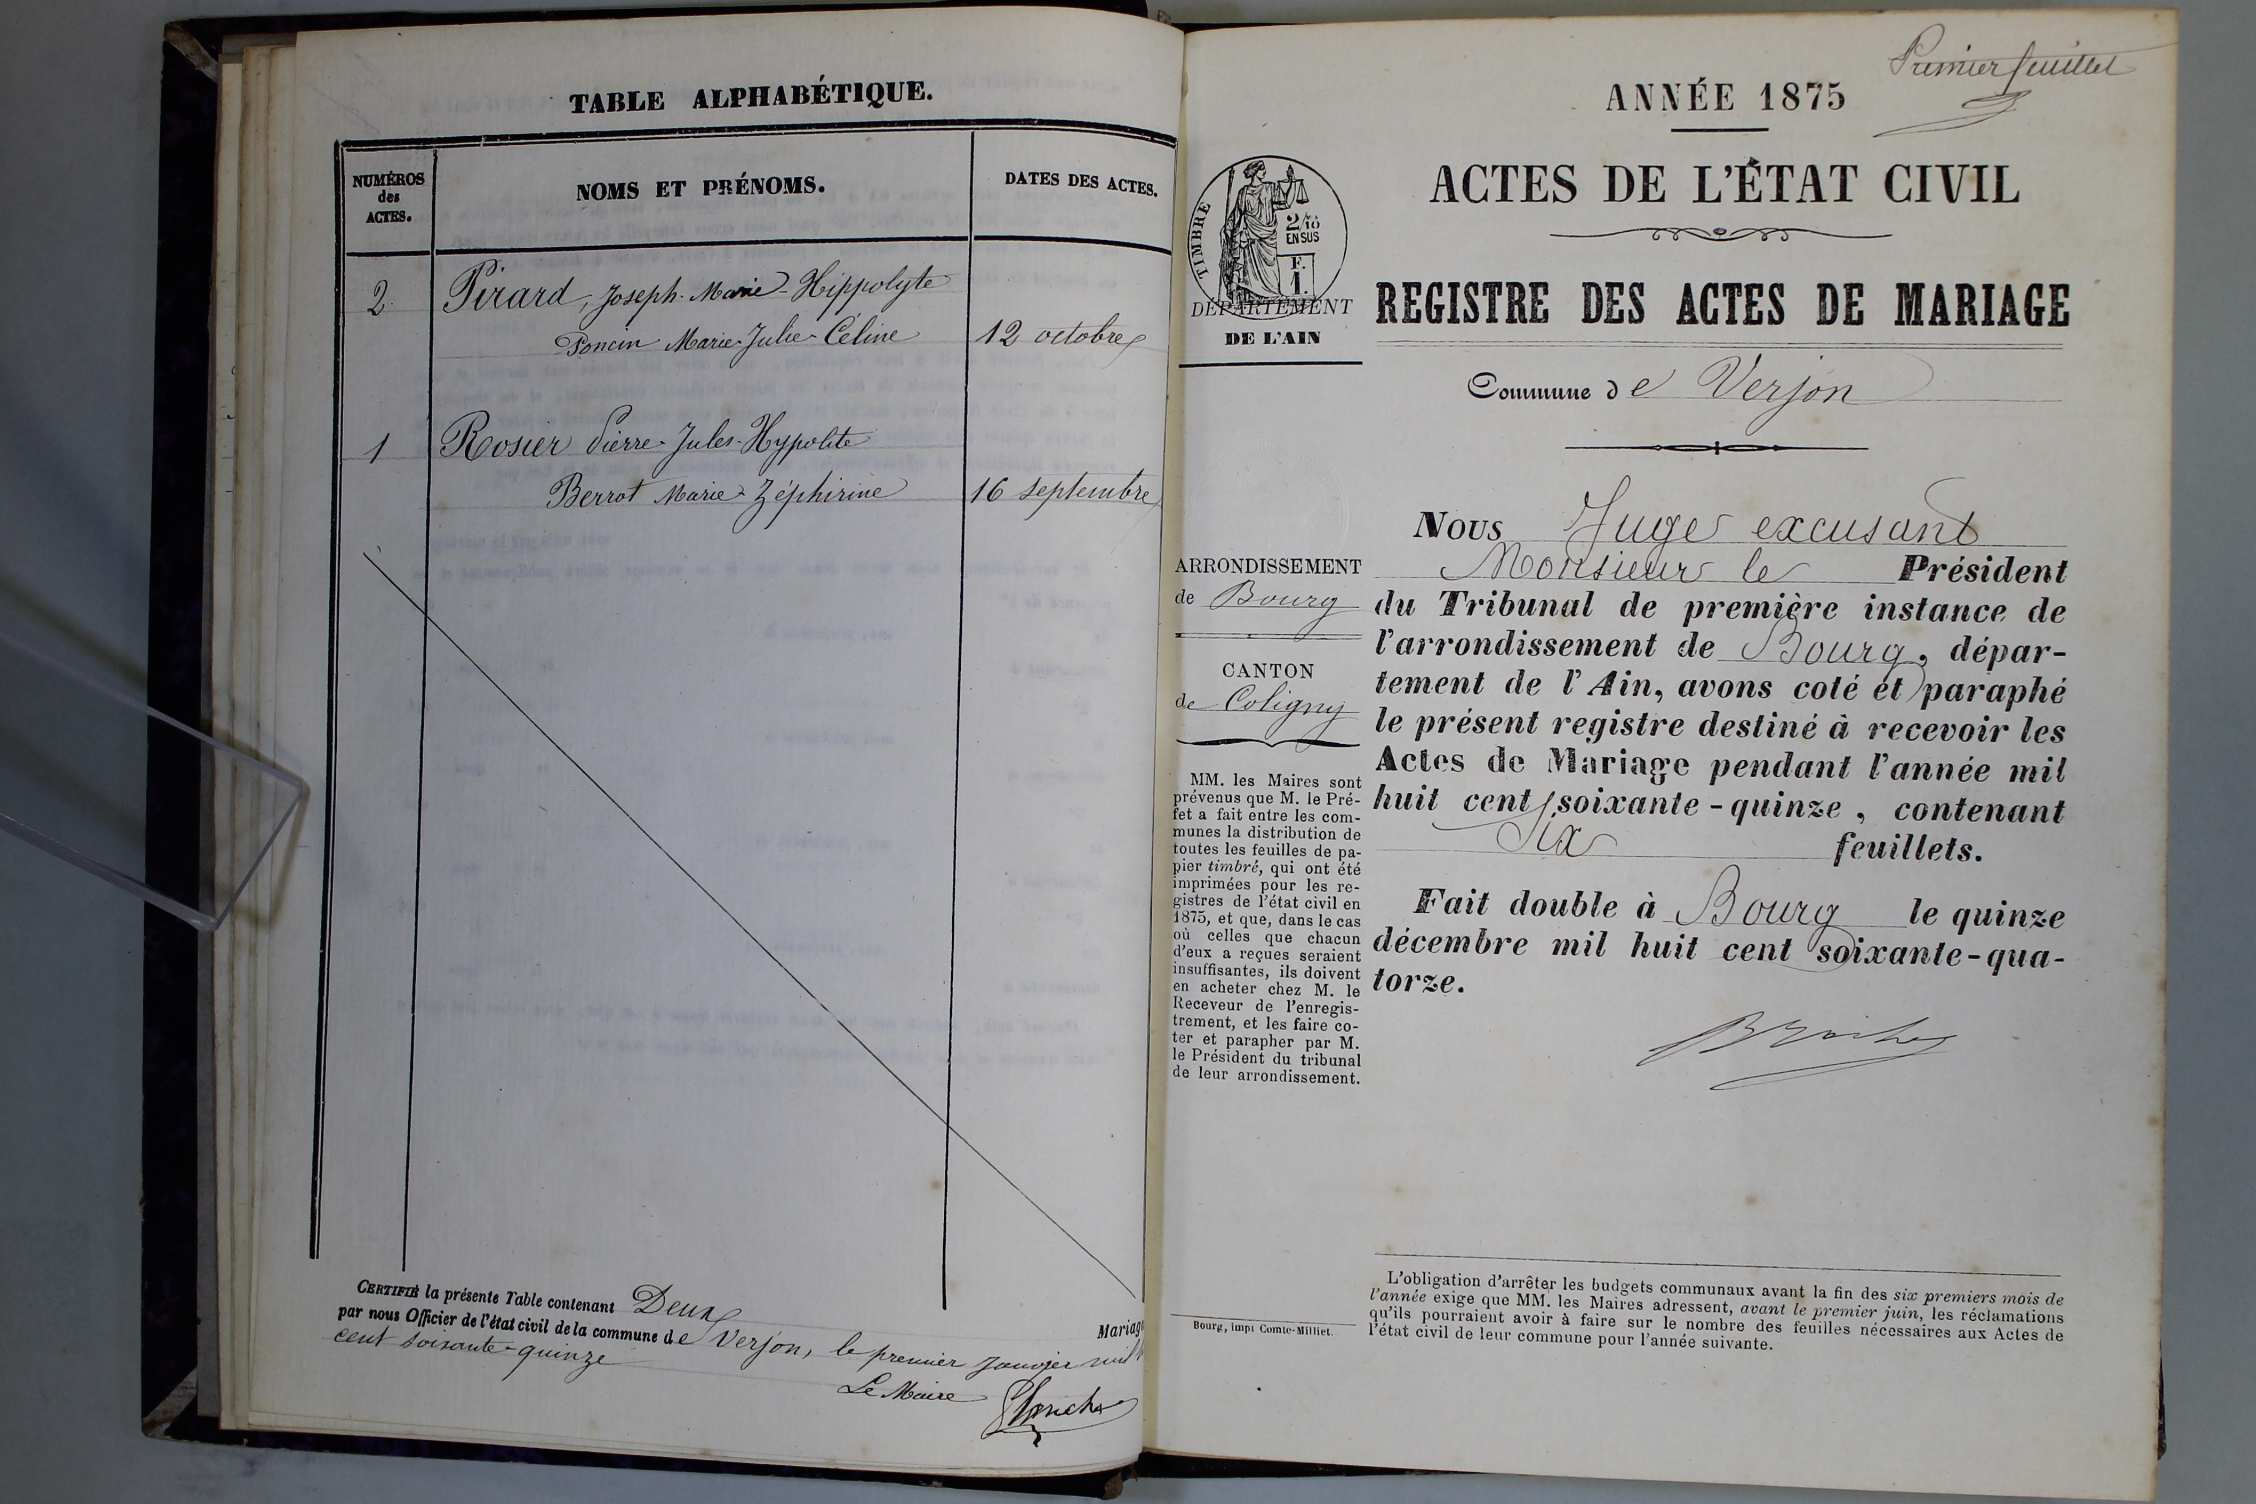 TABLE ALPHABÉTIQUE.
NUMÉROS
des
ACTES.
NOMS ET PRÉNOMS.
DATES DES ACTES.
2 Pirard, Joseph-Marie-Hippolyte
Poncin Marie-Julie-Céline 12 octobre
1 Rosier Pierre-Jules-Hypolite
Berrot Marie-Zéphirine 16 septembre
CERTIFIÉ la présente Table contenant Deux Mariage
par nous Officier de l'état civil de la commune de Verjon, le premier Janvier mil
cent soixante-quinze
Le Maire
Premier feuillet
ANNÉE 1875
ACTES DE L'ÉTAT CIVIL
REGISTRE DES ACTES DE MARIAGE
Commune de Verjon
TIMBRE
2/10
EN SUS
F.
1.
DÉPARTEMENT
DE L'AIN
ARRONDISSEMENT
de Bourg
CANTON
de Coligny
MM. les Maires sont
prévenus que M. le Pré-
fet a fait entre les com-
munes la distribution de
toutes les feuilles de pa-
pier timbré, qui ont été
imprimées pour les re-
gistres de l'état civil en
1875, et que, dans le cas
où celles que chacun
d'eux a reçues seraient
insuffisantes, ils doivent
en acheter chez M. le
Receveur de l'enregis-
trement, et les faire co-
ter et parapher par M.
le Président du tribunal
de leur arrondissement.
Bourg, impr Comte-Milliet.
Nous Juge excusant
Monsieur le Président
du Tribunal de première instance de
l'arrondissement de Bourg, dépar-
tement de l'Ain, avons coté et paraphé
le présent registre destiné à recevoir les
Actes de Mariage pendant l'année mil
huit cent soixante-quinze, contenant
Six feuillets.
Fait double à Bourg le quinze
décembre mil huit cent soixante-qua-
torze.
L'obligation d'arrêter les budgets communaux avant la fin des six premiers mois de
l'année exige que MM. les Maires adressent, avant le premier juin, les réclamations
qu'ils pourraient avoir à faire sur le nombre des feuilles nécessaires aux Actes de
l'état civil de leur commune pour l'année suivante.